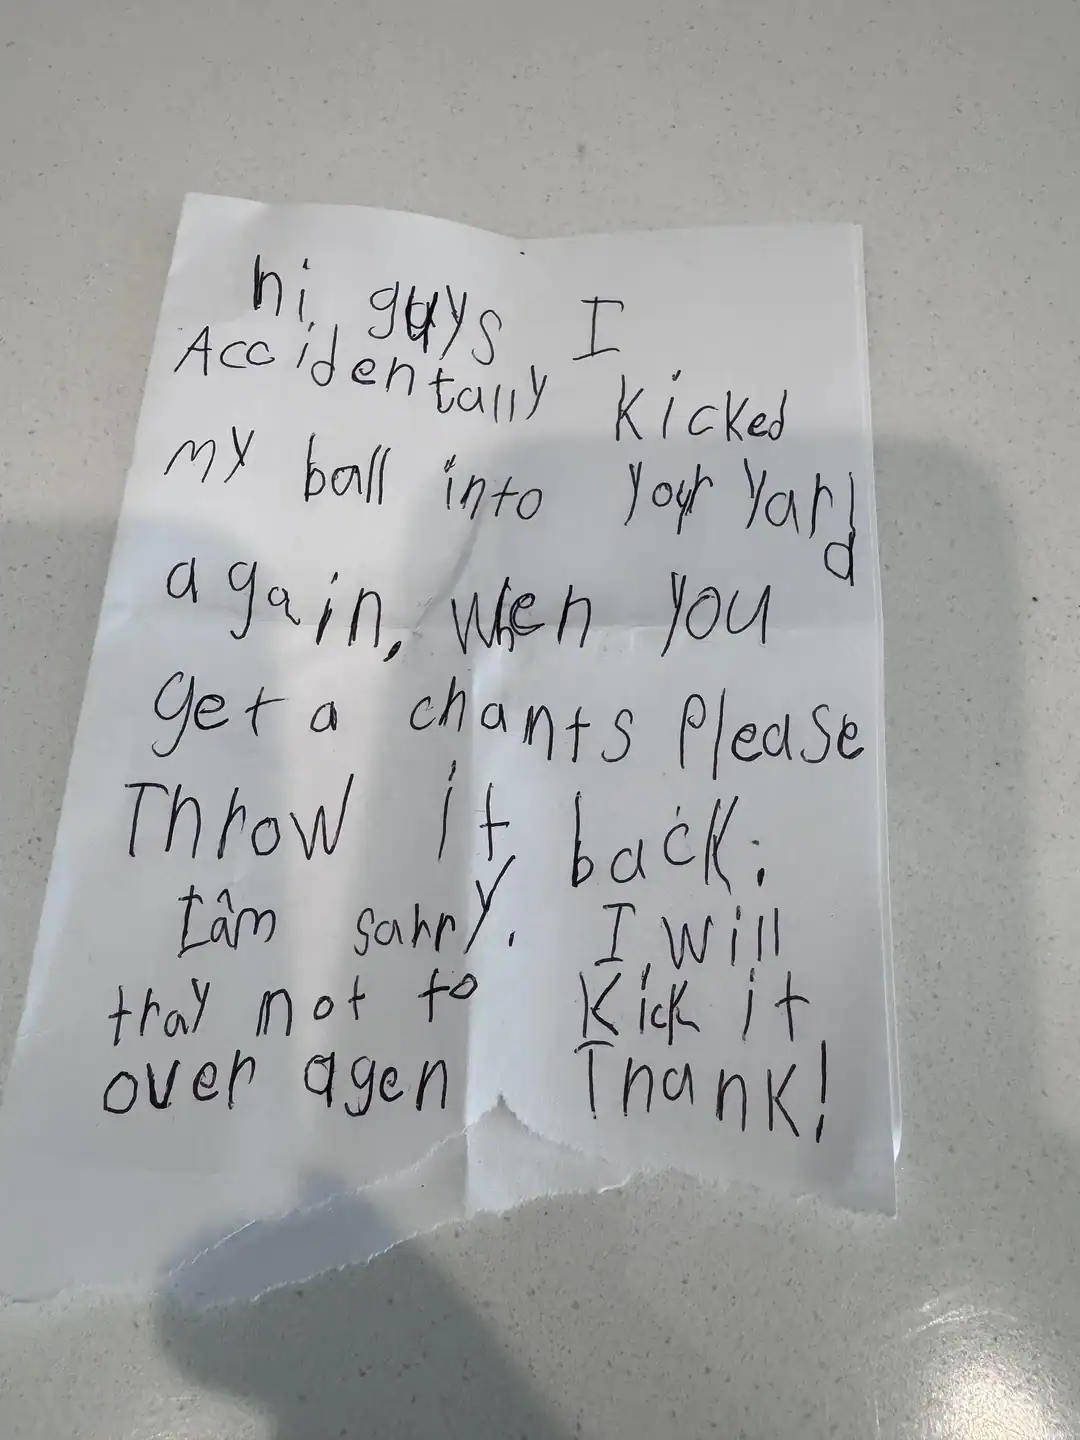 hi guys I
Accidentally kicked
my ball into your yard
again, when you
get a chants Please
Throw it back.
Iâm sahry. I will
tray not to kick it
over agen Thank!